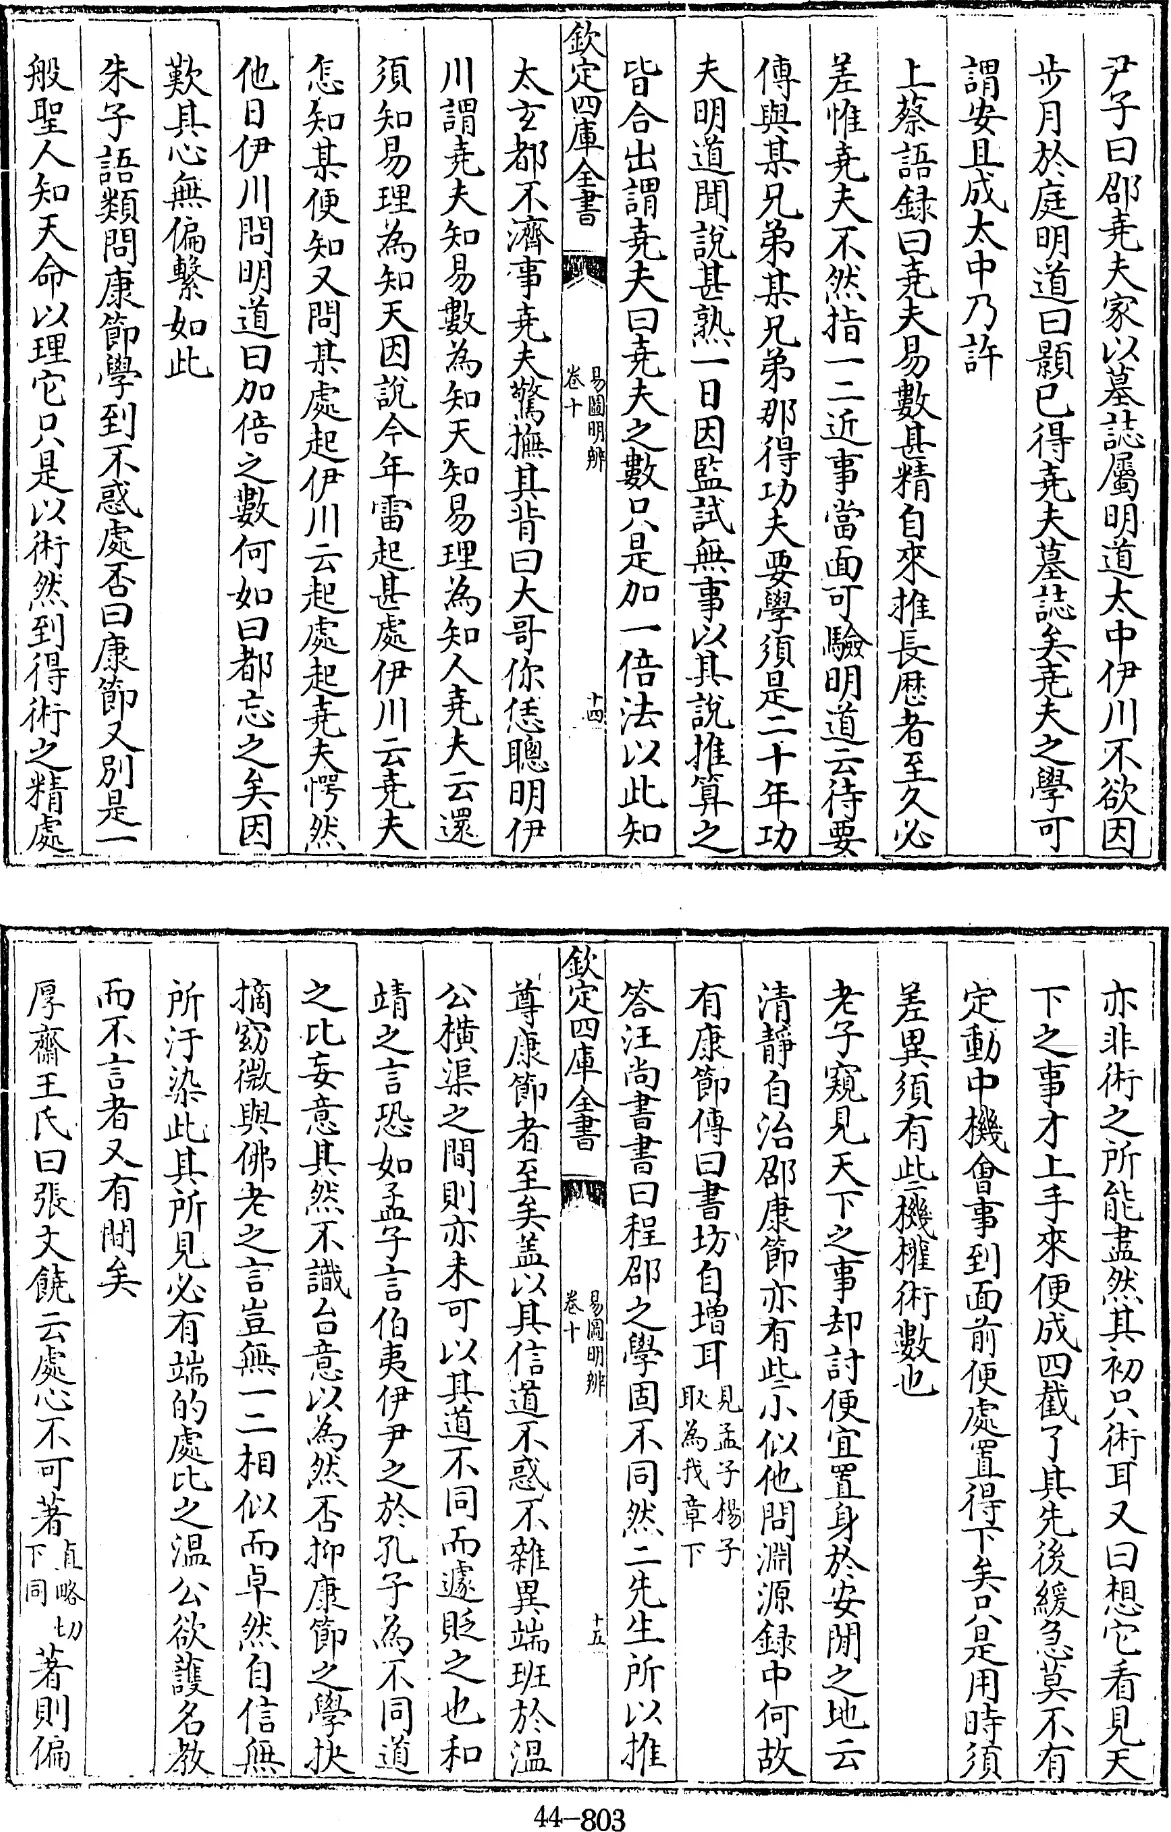 尹子曰邵堯夫家以墓誌屬明道太中伊川不欲因
步月於庭明道曰顥已得堯夫墓誌矣堯夫之學可
謂安且成太中乃許
上蔡語録曰堯夫易數甚精自來推長厯者至久必
差惟堯夫不然指一二近事當面可驗明道云待要
傳與某兄弟某兄弟那得功夫要學須是二十年功
夫明道聞説甚熟一日因監試無事以其說推算之
皆合出謂堯夫曰堯夫之數只是加一倍法以此知
欽定四庫全書
易圖明辨
卷十
十四
太玄都不濟事堯夫驚撫其背曰大哥你恁聰明伊
川謂堯夫知易數為知天知易理為知人堯夫云還
須知易理為知天因說今年雷起甚處伊川云堯夫
怎知某便知又問某處起伊川云起處起堯夫愕然
他日伊川問明道曰加倍之數何如曰都忘之矣因
歎其心無偏繫如此
朱子語類問康節學到不惑處否曰康節又别是一
般聖人知天命以理它只是以術然到得術之精處
亦非術之所能盡然其初只術耳又曰想它看見天
下之事才上手來便成四截了其先後緩急莫不有
定動中機會事到面前便處置得下矣只是用時須
差異須有此三機權術數也
老子窺見天下之事却討便宜置身於安閒之地云
清靜自治邵康節亦有此三小似他問淵源録中何故
有康節傳曰書坊自增耳見孟子楊子
取為我章下
答汪尚書書曰程邵之學固不同然二先生所以推
欽定四庫全書
易圖明辨
卷十
十五
尊康節者至矣蓋以其信道不惑不雜異端班於溫
公橫渠之間則亦未可以其道不同而遽貶之也和
靖之言恐如孟子言伯夷伊尹之於孔子為不同道
之比妄意其然不識台意以為然否抑康節之學抉
摘窈微與佛老之言豈無一二相似而卓然自信無
所汙染此其所見必有端的處比之溫公欲護名教
而不言者又有間矣
厚齋王氏曰張文饒云處心不可著直略切
下同著則偏
44-803